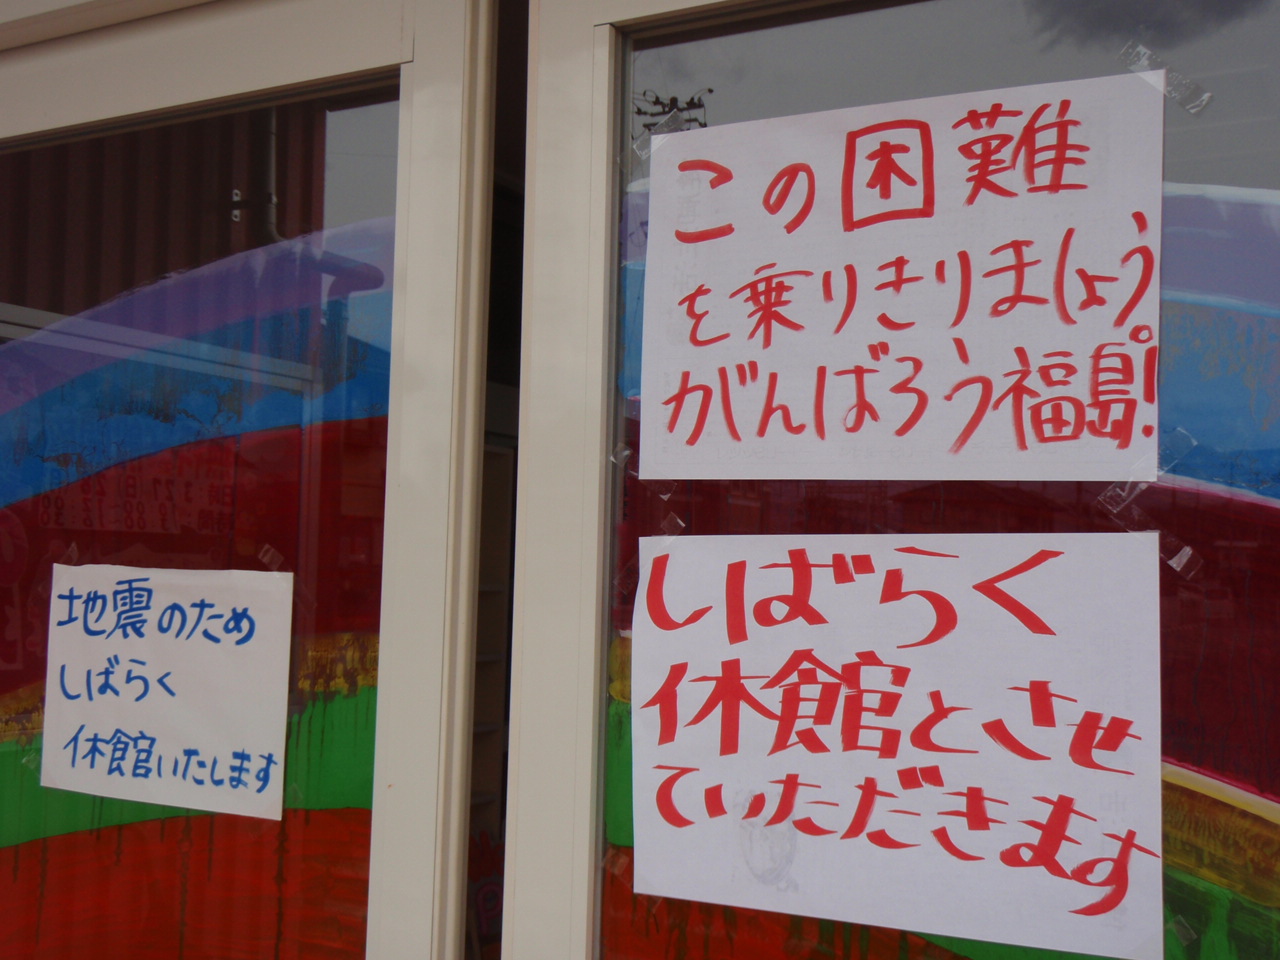 この困難
を乗りきりましょう。
がんばろう福島!
しばらく
休館とさせ
ていただきます
地震のため
しばらく
休館いたします